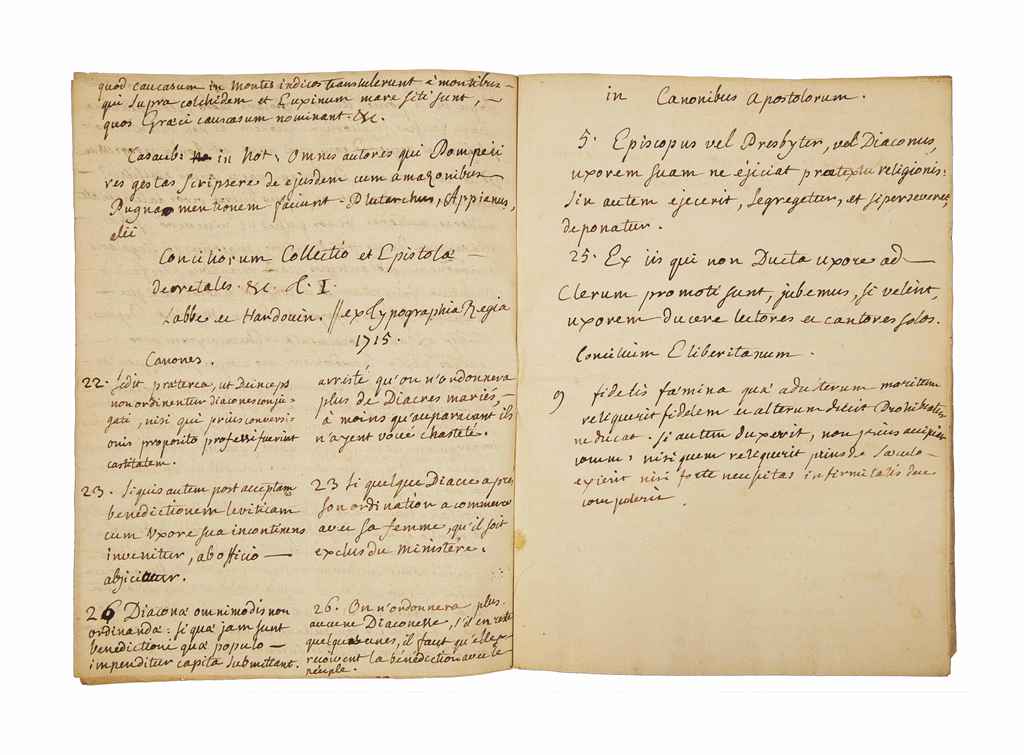 quod caucasum in montes indicos transtulerunt è montibus
qui supra colchidem et Euxinum mare siti sunt, —
quos Græci caucasum nominant. &c.
Casaub: in Not: Omnes autores qui Pompeii
res gestas scripsere de ejusdem cum amazonibus
Pugna mentionem faciunt. Plutarchus, Appianus,
alii
Conciliorum Collectio et Epistolæ —
decretales. &c. t. I.
Labbe et Hardouin. // ex typographia Regia
1715.
Canones.
22. Sedit præterea, ut deinceps
non ordinentur diacones conju-
gati, nisi qui prius conversi-
onis proposito professi fuerint
castitatem.
arresté qu'on n'ordonnera
plus de Diacres mariés, —
à moins qu'auparavant ils
n'ayent voüé chasteté.
23. Si quis autem post acceptam
benedictionem leviticam
cum Uxore sua incontinens
invenitur, ab officio —
abjiciatur.
23 Si quelque Diacre apres
son ordination a commerce
avec sa femme, qu'il soit
exclus du ministère.
26 Diaconæ omnimodis non
ordinandæ: si quæ jam sunt
benedictioni quæ populo —
impenditur capita submittant.
26. On n'ordonnera plus
aucune Diaconesse, s'il en reste
quelques unes, il faut qu'elles
recoivent la bénédiction avec le
peuple.
in Canonibus Apostolorum.
5. Episcopus vel Presbyter, vel Diaconus,
uxorem suam ne éjiciat prætextu religionis:
sin autem ejecerit, segregetur, et si perseveret,
deponatur.
25. Ex iis qui non Ducta uxore ad —
Clerum promoti sunt, jubemus, si velint,
uxorem ducere lectores et cantores solos.
Concilium Eliberitanum.
9) fidelis fæmina quæ adulterum maritum
reliquerit fidelem et alterum ducit Prohibeatur
ne ducat. Si autem duxerit, non prius accipiat
comm: nisi quem reliquerit prius de sæculo —
exierit nisi forte necessitas infirmitatis dare
compulerit.